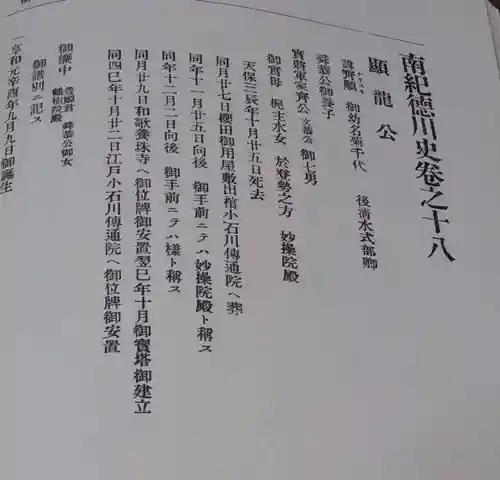 南紀徳川史卷之十八
顯龍公
諱齊順 ナリユキ 御幼名菊千代 後清水式部卿
舜恭公御養子
實將軍家齊公 文恭公 御七男
御實母 梶主水女 於登勢之方 妙操院殿
天保三辰年十月廿五日死去
同月廿七日櫻田御用屋敷出棺小石川傳通院ヘ葬
同年十一月廿五日向後 御手前ニテハ妙操院殿ト稱ス
同年十二月二日向後 御手前ニテハ樣ト稱ス
同月廿九日和歌養珠寺ヘ御位牌御安置翌巳年十月御寶塔御建立
同四巳年十月廿二日江戸小石川傳通院ヘ御位牌御安置
御簾中 豊姫君 舜恭公御女 鶴樹院殿
御譜別ニ記ス
一享和元辛酉年九月九日御誕生